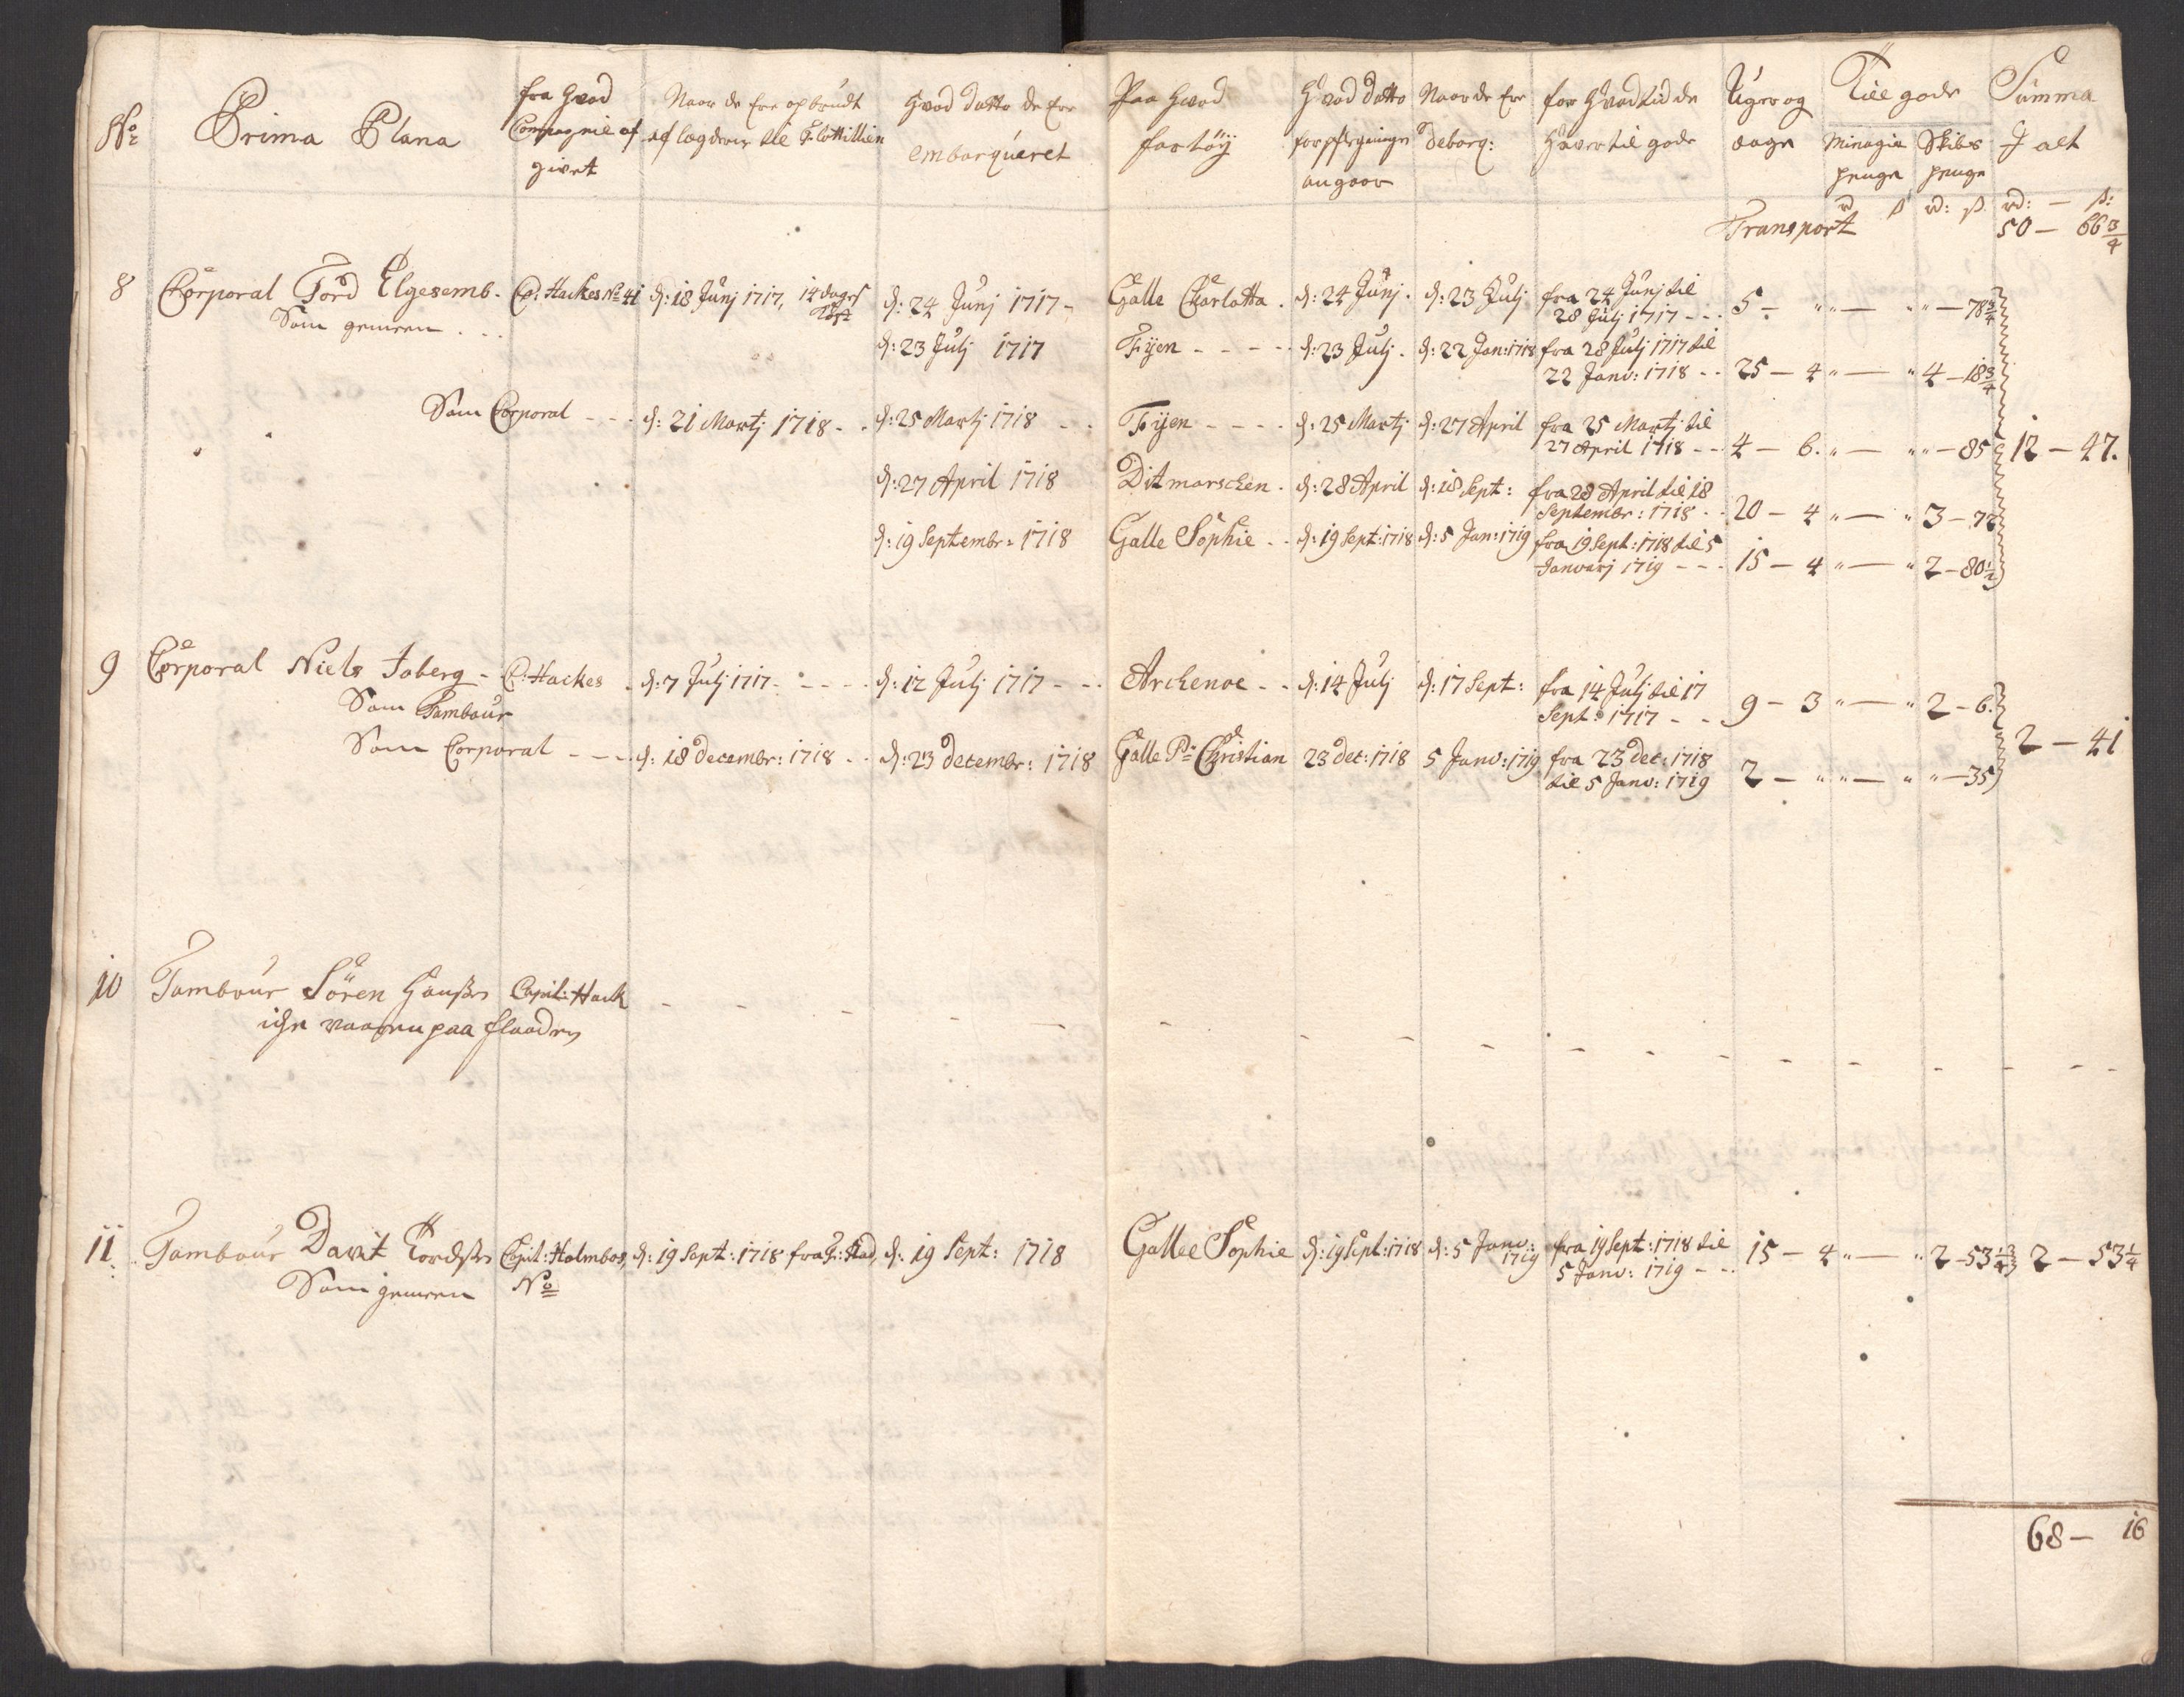 No Prima Plana fra Hvad Compagnie af givet Naar de Ere opbrudt af lægderne til Flottillien Hvad datto de Ere embarqueret Paa Hvad fartöÿ Hvad datto forpflegningen angaar Naar de Ere debarq: for Hvad tid de Haver til gode Uger og dage Till gode Minagie penge Skibs penge Summa J alt
rd ß rd: ß. rd: — ß:
Transport 50 — 66 3/4
8 Corporal Tord Elgesemb. C: Hackes No 41 d: 18 Junj 1717, 14 dages Kost d: 24 Junj 1717 - Galle Charlotta. d: 24 Junj. d: 23 Julj fra 24 Junj til
Som gemeen . . . 28 Julj 1717 - - - 5 - " " — " " — 78 3/4
d: 23 Julj 1717 Fyen - - - - d: 23 Julj. d: 22 Jan: 1718 fra 28 Julj 1717 til
22 Janv: 1718 - - 25 - 4 " — " 4 - 18 3/4
Som Corporal - - - d: 21 Martj 1718 - . d: 25 Martj 1718 - - Fyen - - - - d: 25 Martj d: 27 April fra 25 Martj til
27 April 1718 - - 4 - 6. " — " " - 85 12 - 47.
d: 27 April 1718 Ditmarschen. d: 28 April d: 18 Sept: fra 28 April til 18
Septembr: 1718 - . 20 - 4 " — " 3 - 72
d: 19 Septembr: 1718 Galle Sophie - . d: 19 Sept: 1718 d: 5 Jan: 1719 fra 19 Sept: 1718 til 5
Januarj 1719 - - - 15 - 4 " — " 2 - 80 1/2
9 Corporal Niels Joberg - C: Hackes . d: 7 Julj 1717 - - - - d: 12 Julj 1717 - - - Archenoe - - d: 14 Julj d: 17 Sept: fra 14 Julj til 17
Som Tambour Sept: 1717 - - 9 - 3 " — " 2 - 6.
Som Corporal - - - d: 18 decembr: 1718 . . d: 23 decembr: 1718 Galle Pr Christian 23 dec: 1718 5 Janv: 1719 fra 23 dec: 1718
til 5 Janv: 1719 2 - " " — " " - 35 2 - 41
10 Tambour Sören Hanßen Capit: Hack - - - - - - - - - - - - - - - -
iche været paa flaaden
11. Tambour Davit Tordßen Capit: Holmboe, d: 19 Sept: 1718 fra Fr: Stad, d: 19 Sept: 1718 Gallee Sophie d: 19 Sept: 1718 d: 5 Janv: 1719 fra 19 Sept: 1718 til
Som gemeen No 5 Janv: 1719 - - - 15 - 4 " — " 2 - 53 1/4 2 - 53 1/4
68 - 16